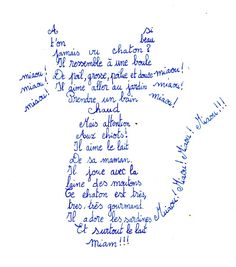 A si
t'on beau
jamais vu chaton ?
Il ressemble à une boule
miaou! De poil, grosse, polie et douce miaou!
miaou! Il aime aller au jardin miaou!
miaou! Prendre un bain miaou!
chaud
Mais attention
Aux chiots!
Il aime le lait
De sa maman.
Il joue avec la
laine des moutons
Ce chaton est très,
très, très gourmand.
Il adore les sardines
Et surtout le lait
Miam!!!
Miaou! Miaou! Miaou! Miaou!!!